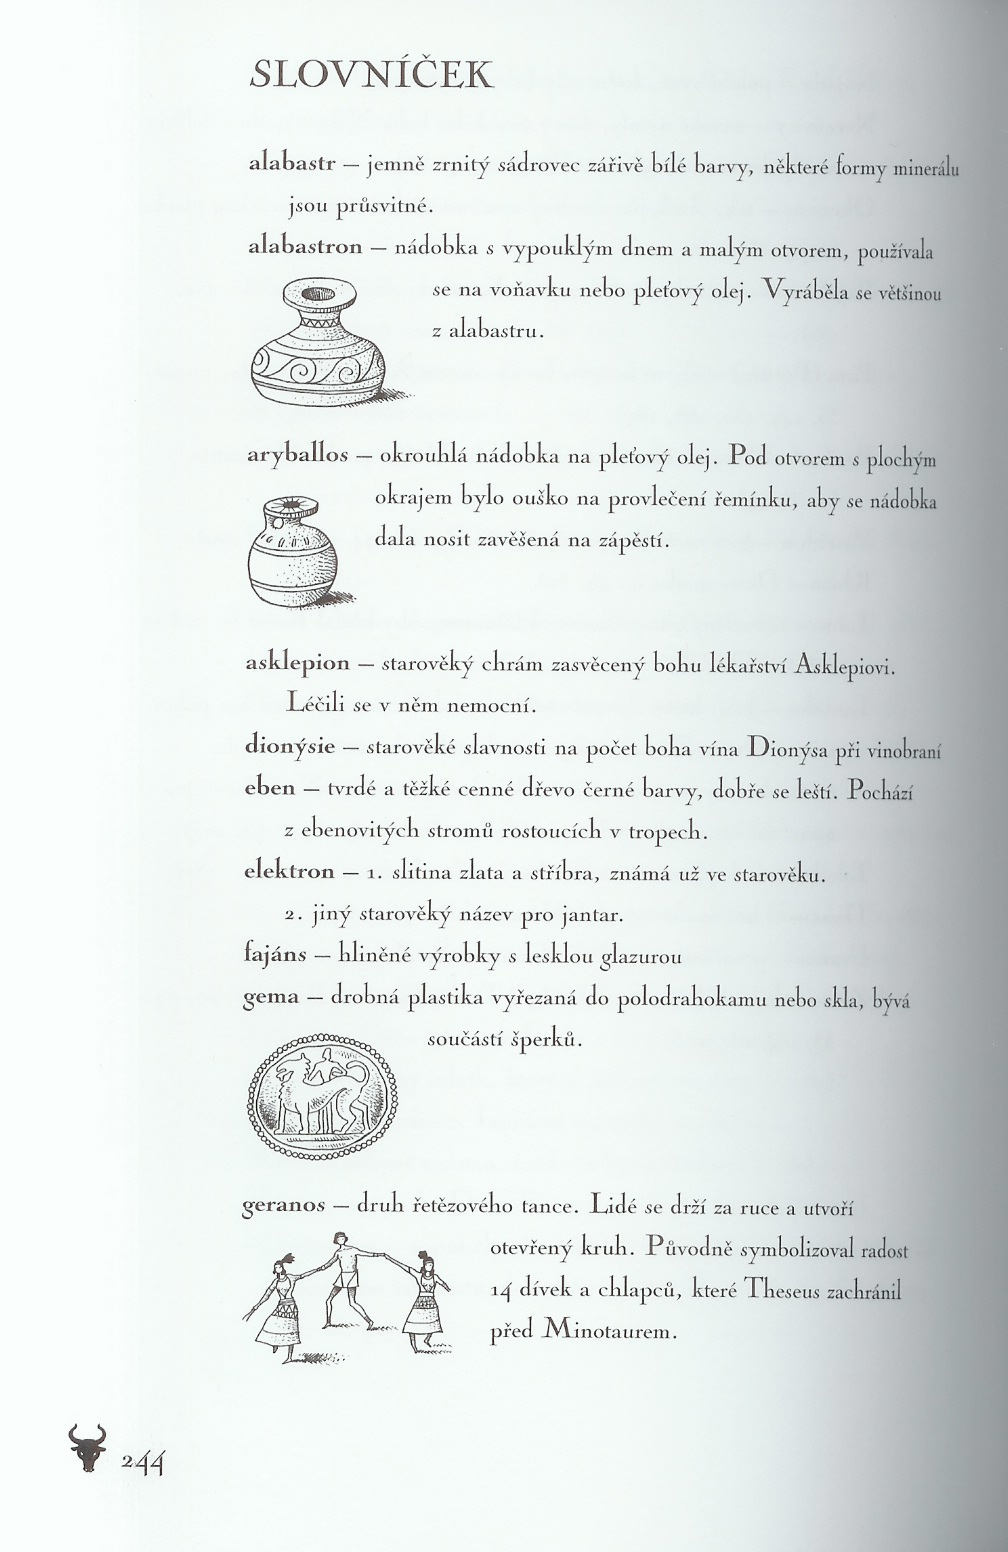 SLOVNÍČEK
alabastr – jemně zrnitý sádrovec zářivě bílé barvy, některé formy minerálu
jsou průsvitné.
alabastron – nádobka s vypouklým dnem a malým otvorem, používala
se na voňavku nebo pleťový olej. Vyráběla se většinou
z alabastru.
aryballos – okrouhlá nádobka na pleťový olej. Pod otvorem s plochým
okrajem bylo ouško na provlečení řemínku, aby se nádobka
dala nosit zavěšená na zápěstí.
asklepion – starověký chrám zasvěcený bohu lékařství Asklepiovi.
Léčili se v něm nemocní.
dionýsie – starověké slavnosti na počet boha vína Dionýsa při vinobraní
eben – tvrdé a těžké cenné dřevo černé barvy, dobře se leští. Pochází
z ebenovitých stromů rostoucích v tropech.
elektron – 1. slitina zlata a stříbra, známá už ve starověku.
2. jiný starověký název pro jantar.
fajáns – hliněné výrobky s lesklou glazurou
gema – drobná plastika vyřezaná do polodrahokamu nebo skla, bývá
součástí šperků.
geranos – druh řetězového tance. Lidé se drží za ruce a utvoří
otevřený kruh. Původně symbolizoval radost
14 dívek a chlapců, které Theseus zachránil
před Minotaurem.
244